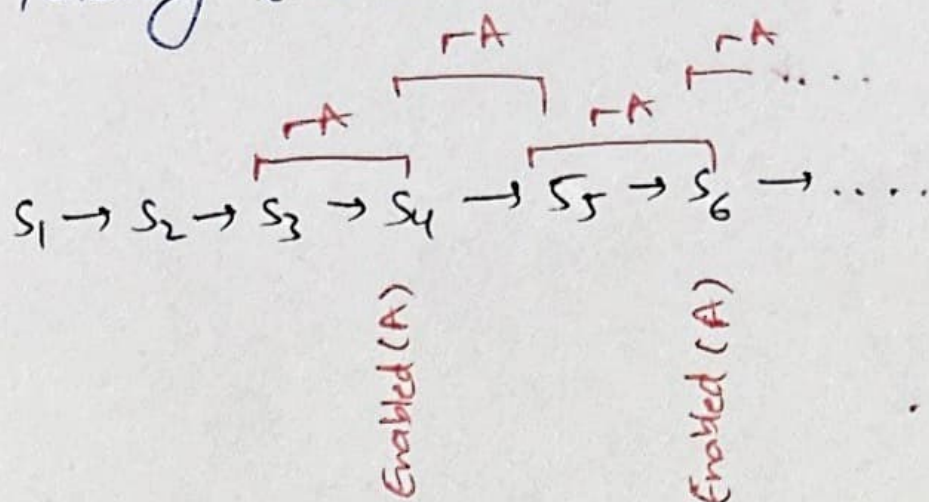 ¬A ¬A ....
¬A ¬A
S₁ → S₂ → S₃ → S₄ → S₅ → S₆ → ....
Enabled (A) Enabled (A)